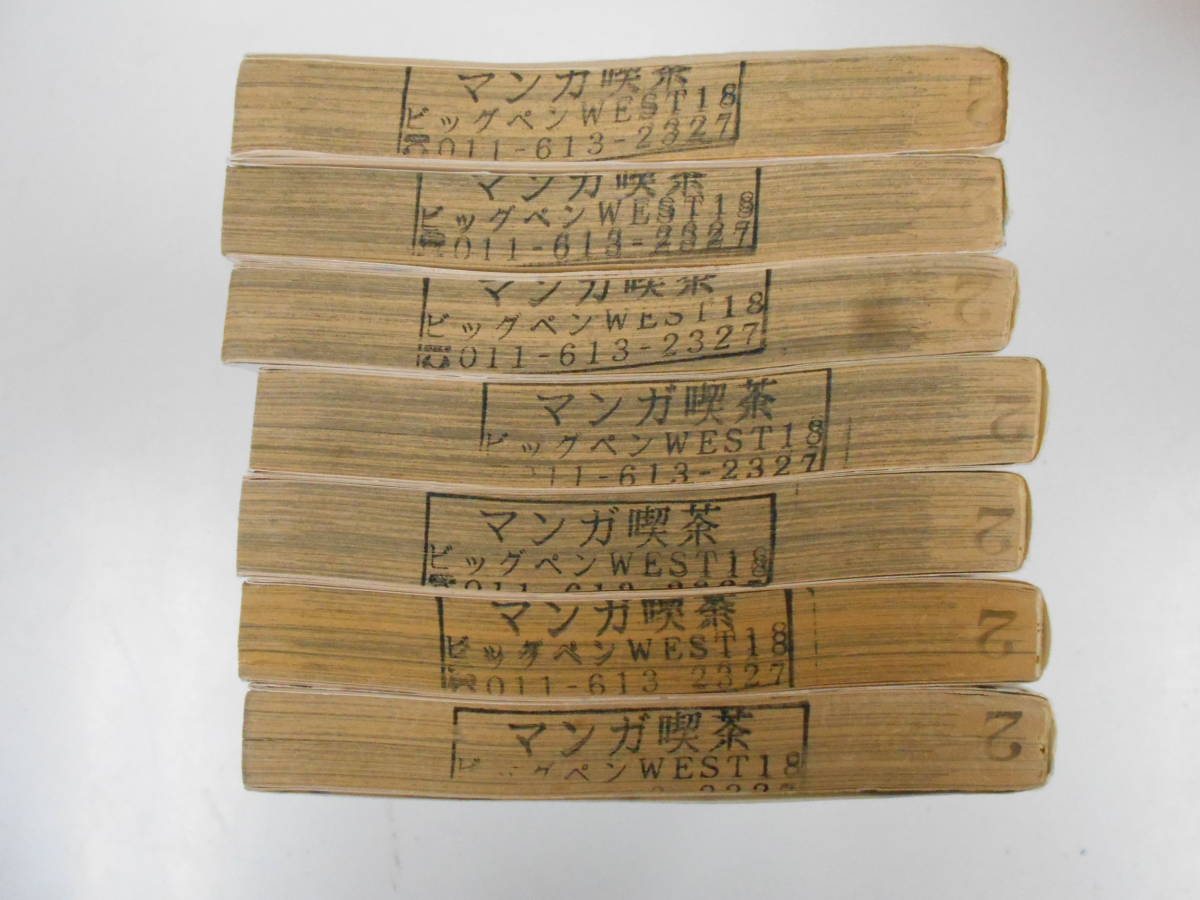 マンガ喫茶
ビッグペンWEST18
☎011-613-2327
2
マンガ喫茶
ビッグペンWEST18
☎011-613-2327
2
マンガ喫茶
ビッグペンWEST18
☎011-613-2327
2
マンガ喫茶
ビッグペンWEST18
011-613-2327
2
マンガ喫茶
ビッグペンWEST18
☎011-613-2327
2
マンガ喫茶
ビッグペンWEST18
☎011-613 2327
2
マンガ喫茶
ビッグペンWEST18
2